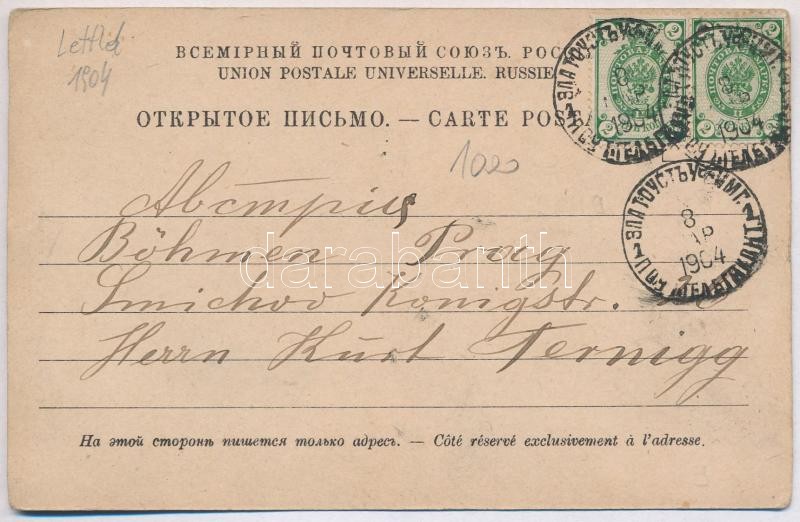 Lettld
1904
ВСЕМІРНЫЙ ПОЧТОВЫЙ СОЮЗЪ. РОС
UNION POSTALE UNIVERSELLE. RUSSIE
ОТКРЫТОЕ ПИСЬМО. — CARTE POS
1020
2 2
ЗЛАТОУСТЪ УФИМ.
8 АР
1904
ЗЛАТОУСТЪ УФИМГ.
8
АР
1904
ПОЧ ТЕЛЕГР
Австрія
Böhmen Prag
Smichov Königstr.
Herrn Kurt Ternigg
darabanth
На этой сторонѣ пишется только адресъ. — Côté réservé exclusivement à l'adresse.